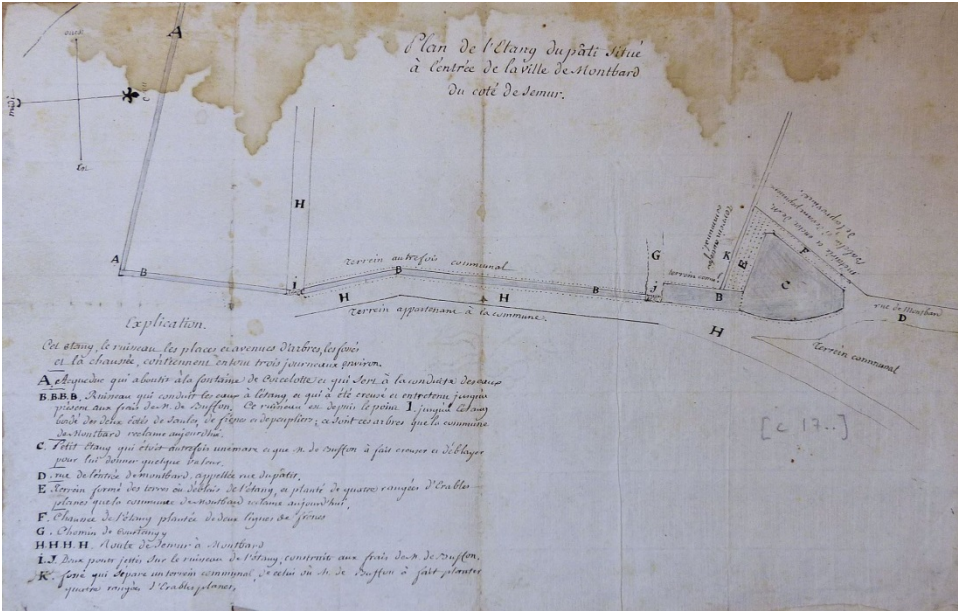 Plan de l'Etang du pâti situé
à l'entrée de la ville de Montbard
du coté de Semur.
A
midi
H
A
B
Terrein autrefois communal
B
I
H
H
B
Terrein appartenant à la commune.
G
K
E
F
C
J
B
H
rue de Montbard
D
Terrein communal
[c 17..]
Explication.
Cet etang, le ruisseau, les places et avenues d'arbres, les fossés
et la chaussée, contiennent entout trois journeaux environ.
A, Acqueduc qui aboutit à la fontaine de et qui sert à la conduite des eaux
B.B.B.B. Ruisseau qui conduit les eaux à l'étang, et qui a été creusé et entretenu jusqu'à
présent aux frais de M. de Buffon. Ce ruisseau est depuis le point I jusqu'à l'étang
bordé des deux cotés de saules, de frênes et de peupliers; ce sont ces arbres que la commune
de Montbard reclame aujourdhui.
C. Petit étang qui étoit autrefois une mare et que M. de Buffon à fait creuser et déblayer
pour lui donner quelque valeur.
D. rue de l'entrée de montbard, appellée rue du pâtis.
E Terrein formé des terres ou déblais de l'étang, et planté de quatre rangées d'Erables
planes que la commune de Montbard reclame aujourd'hui.
F. Chaussée de l'étang plantée de deux lignes de frênes
G. Chemin de
H.H.H.H. Route de Semur à Montbard
I.J. Deux ponts jettés sur le ruisseau de l'étang, construits aux frais de M. de Buffon.
K. fossé qui separe un terrein communal, de celui où M. de Buffon à fait planter
quatre rangées d'Erables planes.